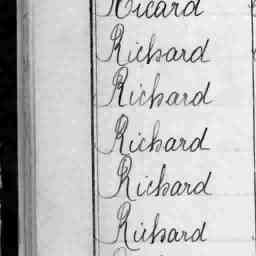 Ricard
Richard
Richard
Richard
Richard
Richard